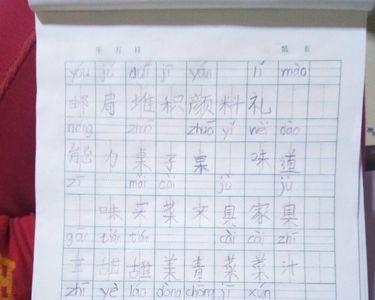 年 月 日 第 页
yóu jú duī jī yán lǐ mào
邮 局 堆 积 颜 料 礼
néng zhuō zhuō yǐ wèi dào
能 力 桌 子 桌 味 道
zī mǎi cài jù jù
味 买 菜 文 具 家 具
gān tián tián cài cài zhī
甘 甜 甜 美 青 菜 菜 汁
zhī yè láo dòng chōng jī xùn